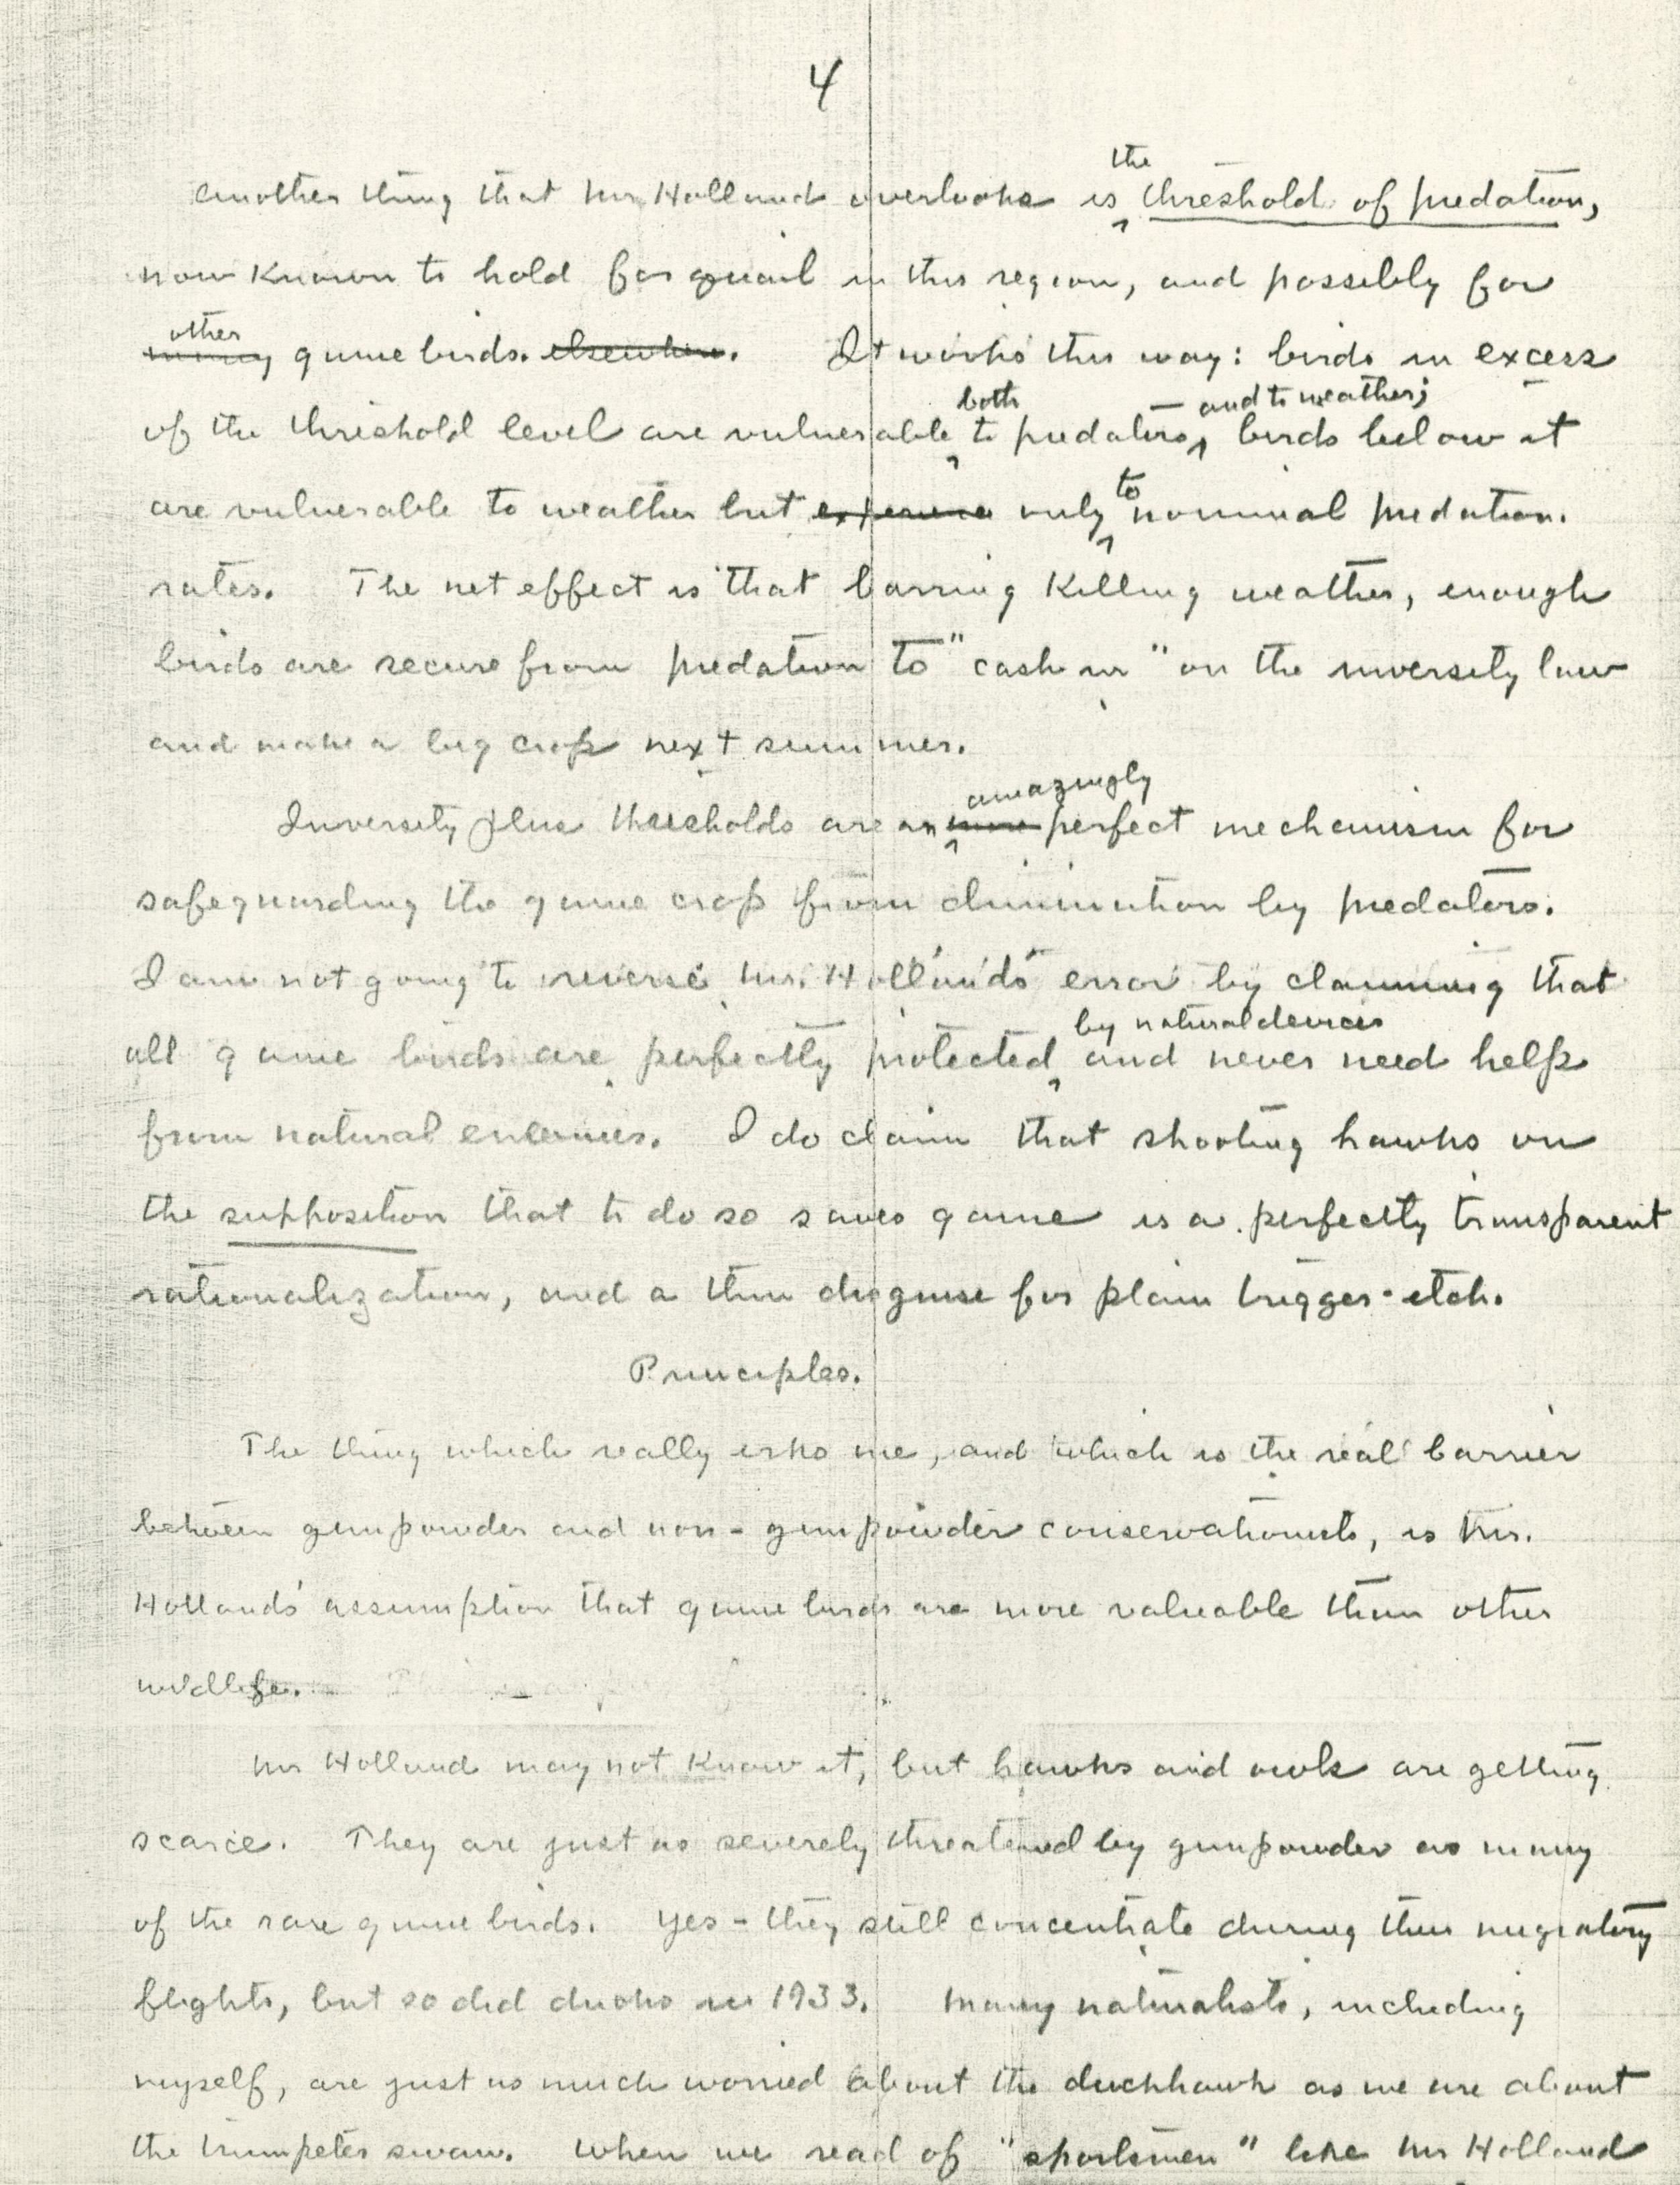 4
Another thing that Mr. Holland overlooks is the threshold of predation,
now known to hold for quail in this region, and possibly for
many other game birds. elsewhere. It works this way: birds in excess
of the threshold level are vulnerable both to predators, and to weather; birds below it
are vulnerable to weather but experience only to nominal predation.
rates. The net effect is that barring killing weather, enough
birds are secure from predation to "cash in" on the inversity law
and make a big crop next summer.
Inversity plus thresholds are an more amazingly perfect mechanism for
safeguarding the game crop from diminution by predators.
I am not going to reverse Mr. Holland's error by claiming that
all game birds are perfectly protected by natural devices and never need help
from natural enemies. I do claim that shooting hawks on
the supposition that to do so saves game is a perfectly transparent
rationalization, and a thin disguise for plain trigger-itch.
Principles.
The thing which really irks me, and which is the real barrier
between gunpowder and non-gunpowder conservationists, is Mr.
Hollands' assumption that game birds are more valuable than other
wildlife.
Mr Holland may not know it, but hawks and owls are getting
scarce. They are just as severely threatened by gunpowder as many
of the rare game birds. Yes - they still concentrate during their migratory
flights, but so did ducks in 1933. Many naturalists, including
myself, are just as much worried about the duckhawk as we are about
the trumpeter swan. When we read of "sportsmen" like Mr Holland